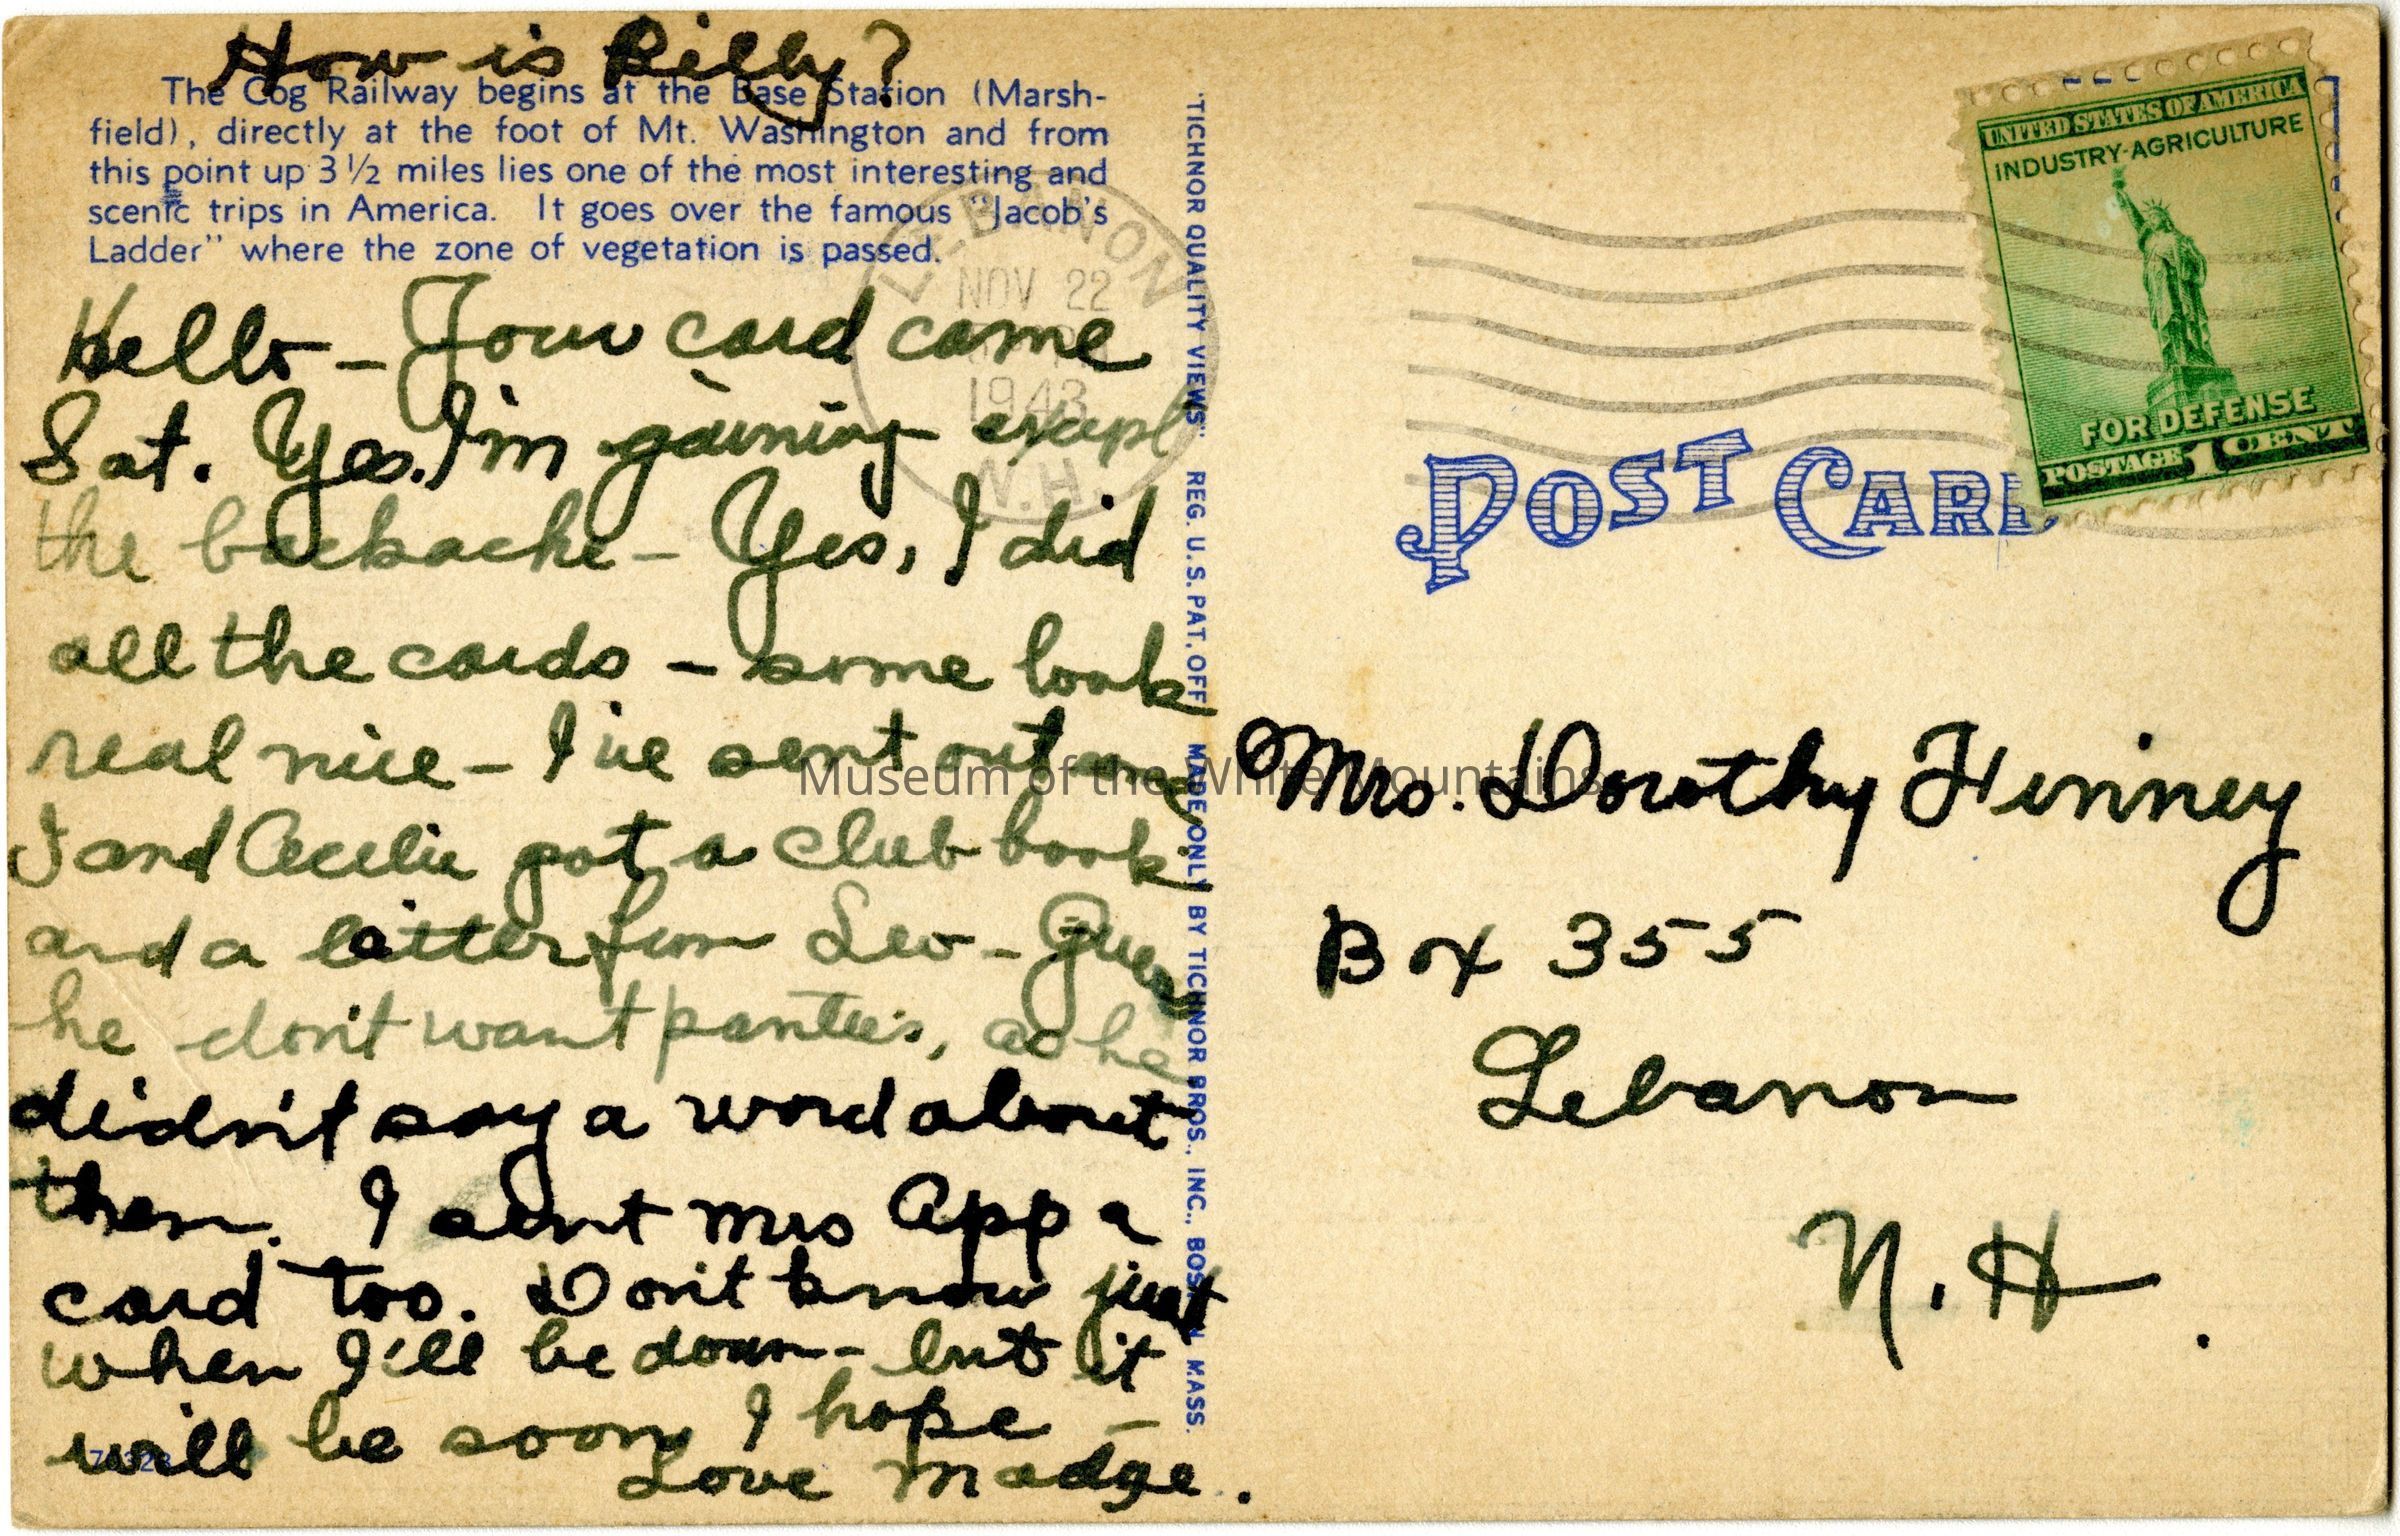 How is Billy?
The Cog Railway begins at the Base Station (Marsh-
field), directly at the foot of Mt. Washington and from
this point up 3 ½ miles lies one of the most interesting and
scenic trips in America. It goes over the famous "Jacob's
Ladder" where the zone of vegetation is passed.
Hello – Your card came
Sat. Yes. I'm gaining except
the backache – Yes, I did
all the cards – some look
real nice – I've sent out
I and Cecelie got a club book
and a letter from Leo – Guess
he don't want panties, as he
didn't say a word about
them. I sent Mrs App a
card too. Don't know just
when I'll be down – but it
will be soon I hope –
Love Madge.
LEBANON
NOV 22
1943
N.H.
"TICHNOR QUALITY VIEWS" REG. U.S. PAT. OFF. MADE ONLY BY TICHNOR BROS., INC., BOSTON MASS.
UNITED STATES OF AMERICA
INDUSTRY-AGRICULTURE
FOR DEFENSE
POSTAGE 1 CENT
POST CARD
Mrs. Dorothy Finney
Box 355
Lebanon
N. H.
Museum of the White Mountains